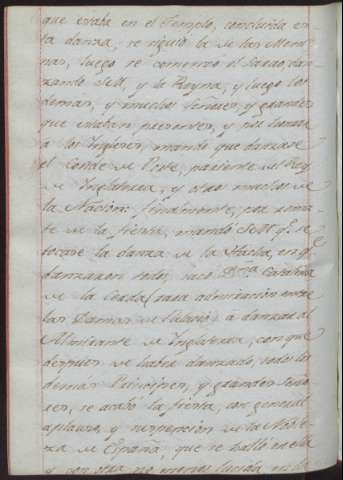 que estaba en el Templo, concluida es-
ta danza, se siguió la de las Meni-
nas, luego se comenzó el sarao dan-
zando S.M. y la Reyna, y luego los
demas, y muchos Señores, y grandes
que estaban presentes, y por honrar
a los Ingleses, mandó que danzase
el Conde de Perte, pariente del Rey
de Inglaterra, y otros muchos de
la Nacion: finalmente, por rema-
te de la fiesta, mandó S.M. q.e se
tocase la danza de la Hacha, en q.e
danzaron todos, sacó D.ña Catalina
de la Cerda (rara admiracion entre
las Damas de Palacio) a danzar al
Almirante de Inglaterra, con que
despues de haber danzado, todos los
demas Principes, y grandes Seño-
res, se acabó la fiesta, con general
aplauso, y suspension de la Noble-
za de España, que se halló en ella
y con otra no menos lucida, en de